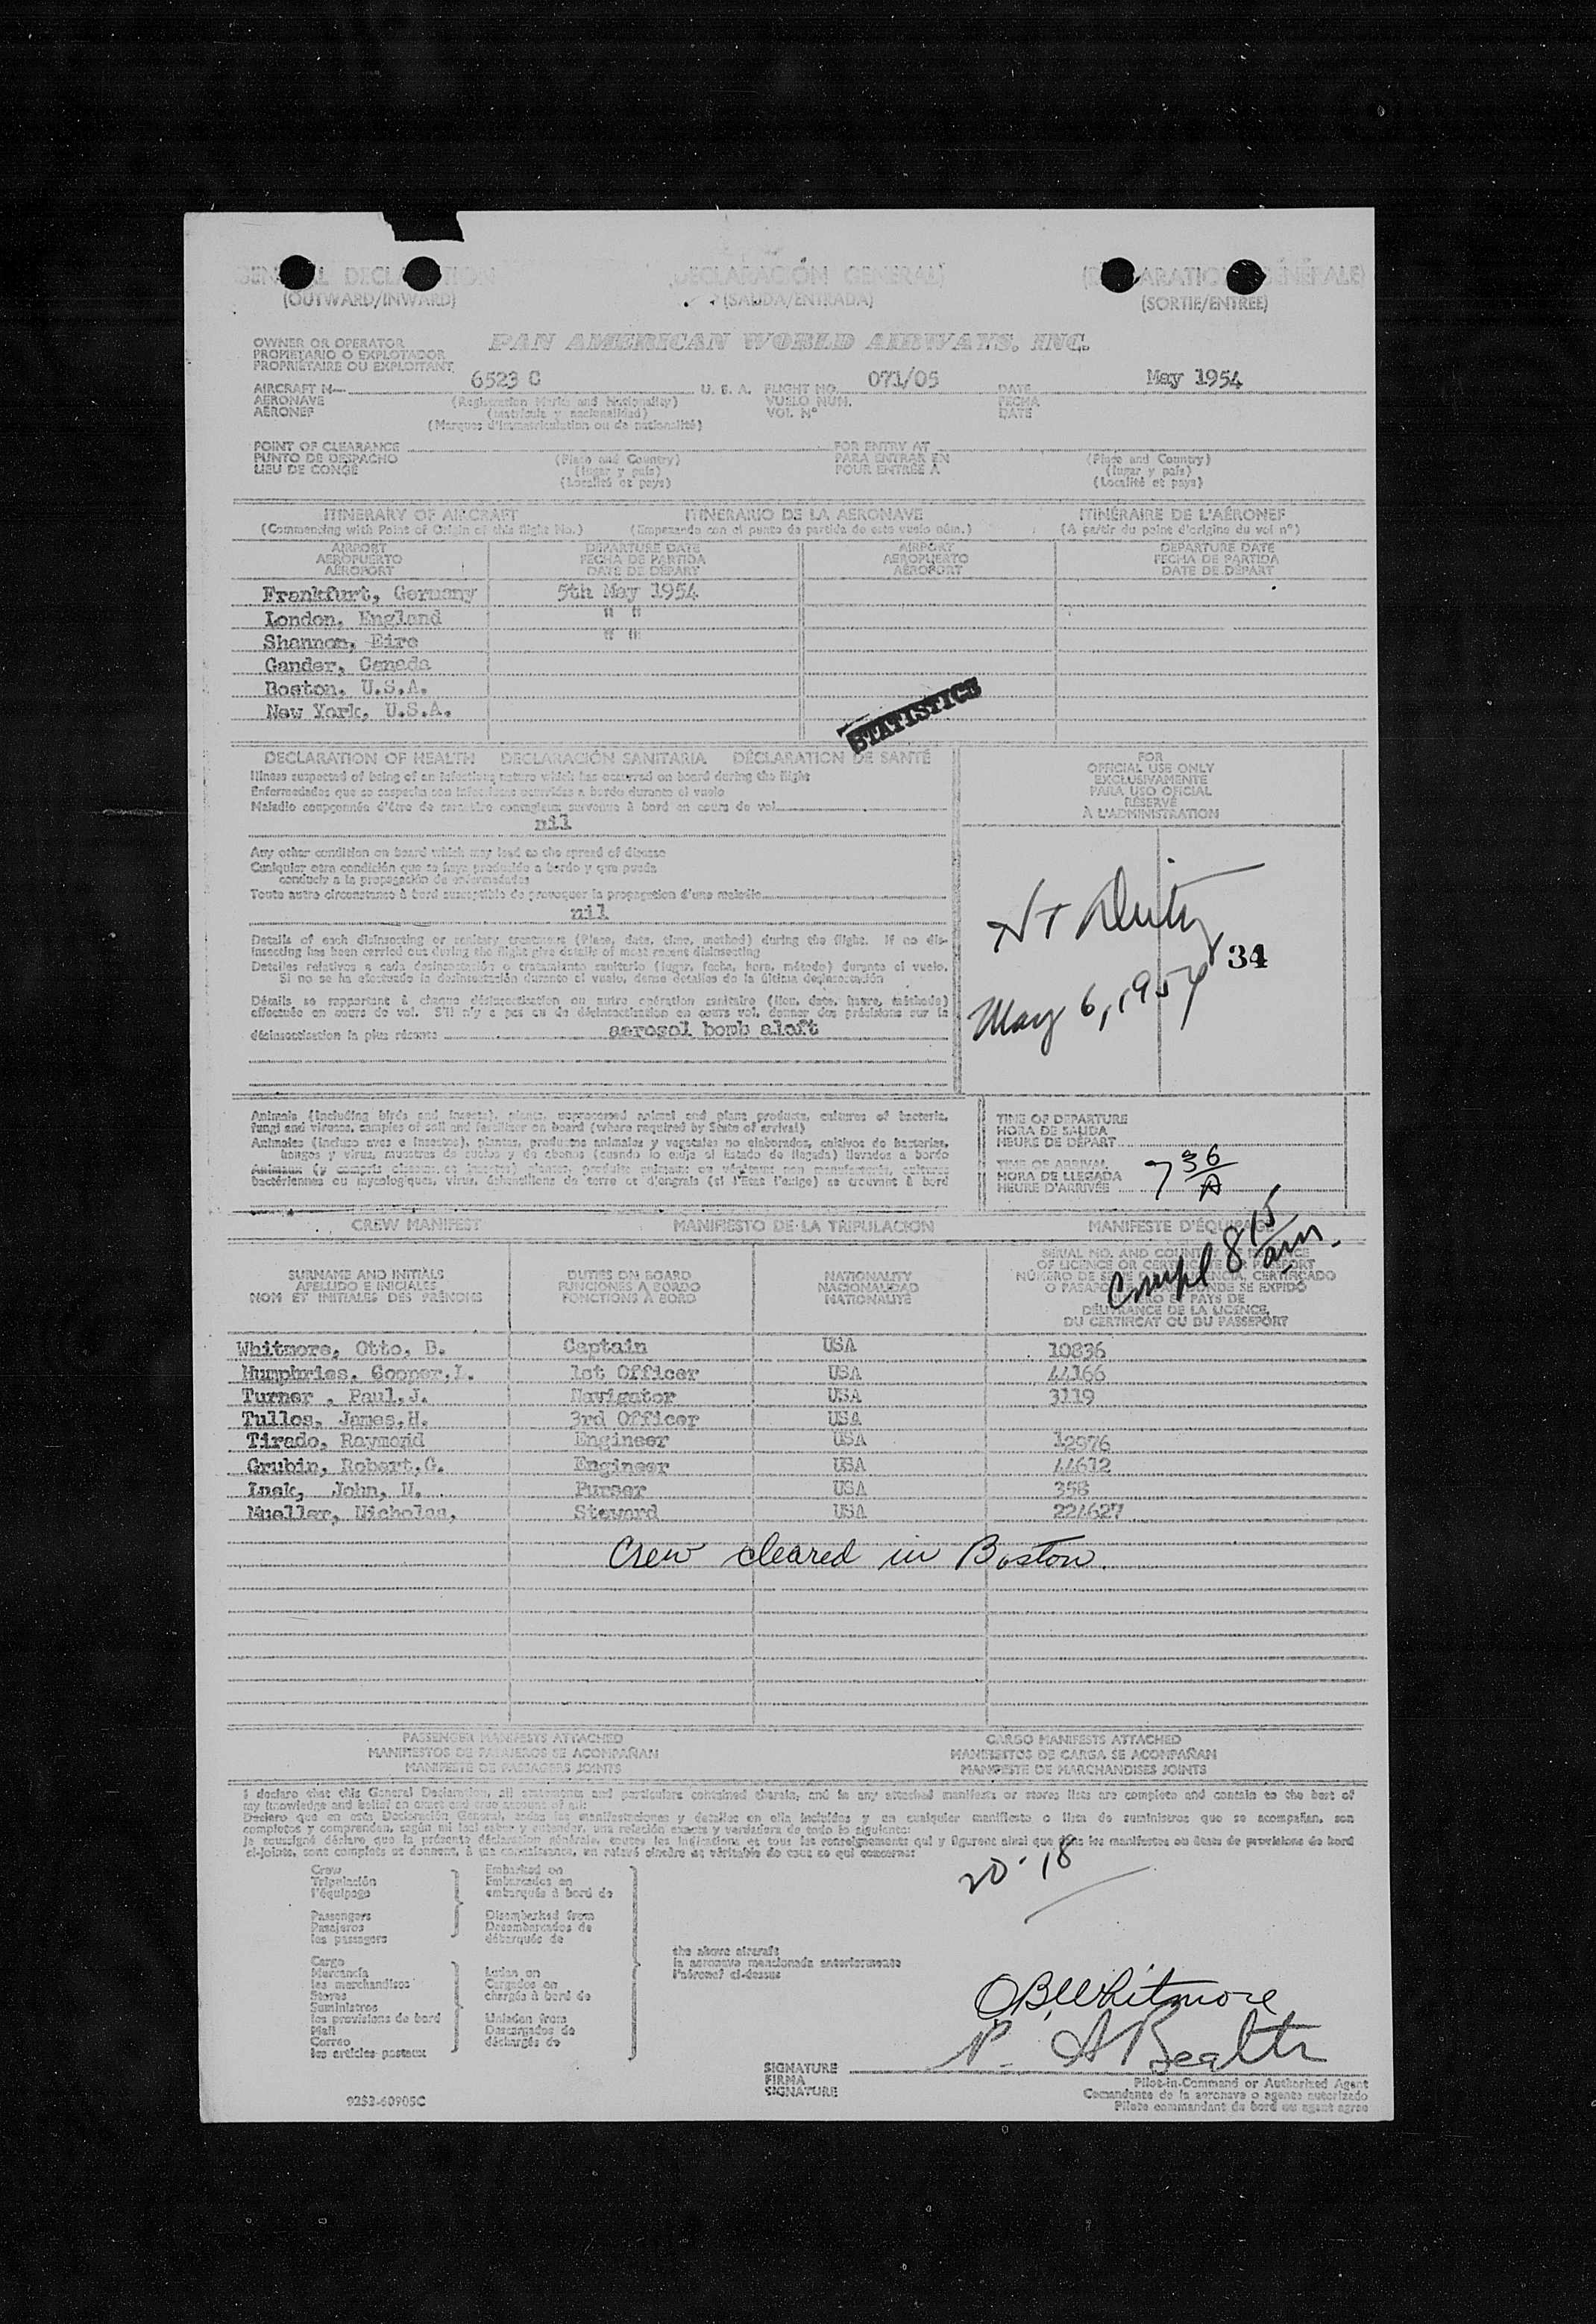 GENERAL DECLARATION (DECLARACIÓN GENERAL) (DÉCLARATION GÉNÉRALE)
(OUTWARD/INWARD) (SALIDA/ENTRADA) (SORTIE/ENTRÉE)
OWNER OR OPERATOR PAN AMERICAN WORLD AIRWAYS, INC.
PROPIETARIO O EXPLOTADOR
PROPRIÉTAIRE OU EXPLOITANT
AIRCRAFT N— 6523 C U. S. A. FLIGHT NO. 071/05 DATE May 1954
AERONAVE (Registration Marks and Nationality) VUELO NÚM. FECHA
AÉRONEF (matrícula y nacionalidad) VOL N° DATE
(Marques d'immatriculation ou de nationalité)
POINT OF CLEARANCE FOR ENTRY AT
PUNTO DE DESPACHO (Place and Country) PARA ENTRAR EN (Place and Country)
LIEU DE CONGÉ (lugar y país) POUR ENTRÉE A (lugar y país)
(Localité et pays) (Localité et pays)
ITINERARY OF AIRCRAFT ITINERARIO DE LA AERONAVE ITINÉRAIRE DE L'AÉRONEF
(Commencing with Point of Origin of this flight No.) (Empezando con el punto de partida de este vuelo núm.) (A partir du point d'origine du vol n°)
AIRPORT DEPARTURE DATE AIRPORT DEPARTURE DATE
AEROPUERTO FECHA DE PARTIDA AEROPUERTO FECHA DE PARTIDA
AÉROPORT DATE DE DÉPART AÉROPORT DATE DE DÉPART
Frankfurt, Germany 5th May 1954
London, England " "
Shannon, Eire " "
Gander, Canada
Boston, U.S.A.
New York, U.S.A.
STATISTICS
DECLARATION OF HEALTH DECLARACIÓN SANITARIA DÉCLARATION DE SANTÉ
Illness suspected of being of an infectious nature which has occurred on board during the flight
Enfermedades que se sospecha son infecciosas ocurridas a bordo durante el vuelo
Maladie soupçonnée d'être de caractère contagieux survenue à bord en cours de vol
nil
Any other condition on board which may lead to the spread of disease
Cualquier otra condición que se haya producido a bordo y que pueda
conducir a la propagación de enfermedades
Toute autre circonstance à bord susceptible de provoquer la propagation d'une maladie
nil
Details of each disinsecting or sanitary treatment (Place, date, time, method) during the flight. If no dis-
insecting has been carried out during the flight give details of most recent disinsecting
Detalles relativos a cada desinsectación o tratamiento sanitario (lugar, fecha, hora, método) durante el vuelo.
Si no se ha efectuado la desinsectación durante el vuelo, dense detalles de la última desinsectación
Détails se rapportant à chaque désinsectisation ou autre opération sanitaire (lieu, date, heure, méthode)
effectuée en cours de vol. S'il n'y a pas eu de désinsectisation en cours vol, donner des précisions sur la
désinsectisation la plus récente aerosol bomb aloft
FOR
OFFICIAL USE ONLY
EXCLUSIVAMENTE
PARA USO OFICIAL
RÉSERVÉ
À L'ADMINISTRATION
34
May 6, 1954
Animals (including birds and insects), plants, unprocessed animal and plant products, cultures of bacteria,
fungi and viruses, samples of soil and fertilizer on board (where required by State of arrival)
Animales (incluso aves e insectos), plantas, productos animales y vegetales no elaborados, cultivos de bacterias,
hongos y virus, muestras de suelos y de abonos (cuando lo exija el Estado de llegada) llevados a bordo
Animaux (y compris oiseaux et insectes), plantes, produits animaux ou végétaux non manufacturés, cultures
bactériennes ou mycologiques, virus, échantillons de terre et d'engrais (si l'État l'exige) se trouvant à bord
TIME OF DEPARTURE
HORA DE SALIDA
HEURE DE DÉPART
TIME OF ARRIVAL
HORA DE LLEGADA 7 36/A
HEURE D'ARRIVÉE
Compl 8 15/am.
CREW MANIFEST MANIFIESTO DE LA TRIPULACION MANIFESTE D'ÉQUIPAGE
SURNAME AND INITIALS DUTIES ON BOARD NATIONALITY
APELLIDO E INICIALES FUNCIONES A BORDO NACIONALIDAD
NOM ET INITIALES DES PRÉNOMS FONCTIONS À BORD NATIONALITÉ
DÉLIVRANCE DE LA LICENCE,
DU CERTIFICAT OU DU PASSEPORT
Whitmore, Otto, B. Captain USA 10836
Humphries, Cooper, L. 1st Officer USA 44166
Turner , Paul,J. Navigator USA 3119
Tullos, James,H. 3rd Officer USA
Tirado, Raymond Engineer USA 12976
Grubin, Robert,G. Engineer USA 44612
John, N. Purser USA 358
Mueller, Nicholas, Steward USA 224627
Crew cleared in Boston.
PASSENGER MANIFESTS ATTACHED CARGO MANIFESTS ATTACHED
MANIFIESTOS DE PASAJEROS SE ACOMPAÑAN MANIFIESTOS DE CARGA SE ACOMPAÑAN
MANIFESTE DE PASSAGERS JOINTS MANIFESTE DE MARCHANDISES JOINTS
I declare that this General Declaration, all statements and particulars contained therein, and in any attached manifests or stores lists are complete and contain to the best of
my knowledge and belief an exact and true account of all:
Declaro que en esta Declaración General, todas las manifestaciones y detalles en ella incluidos y en cualquier manifiesto o lista de suministros que se acompañan, son
completos y comprenden, según mi leal saber y entender, una relación exacta y verdadera de todo lo siguiente:
Je soussigné déclare que la présente déclaration générale, toutes les indications et tous les renseignements qui y figurent ainsi que dans les manifestes ou états de provisions de bord
ci-joints, sont complets et donnent, à ma connaissance, un relevé sincère et véritable de tout ce qui concerne:
20-18
Crew Embarked on
Tripulación Embarcados en
l'équipage embarqués à bord de
Passengers Disembarked from
Pasajeros Desembarcados de
les passagers débarqués de
the above aircraft
la aeronave mencionada anteriormente
l'aéronef ci-dessus
Cargo
Mercancía Laden on
les marchandises Cargados en
Stores chargés à bord de
Suministros
les provisions de bord Unladen from
Mail Descargados de
Correo déchargés de
les articles postaux
OBWhitmore
SIGNATURE
FIRMA
SIGNATURE
Pilot-in-Command or Authorized Agent
Comandante de la aeronave o agente autorizado
Pilote commandant de bord ou agent agree
9253-60905C